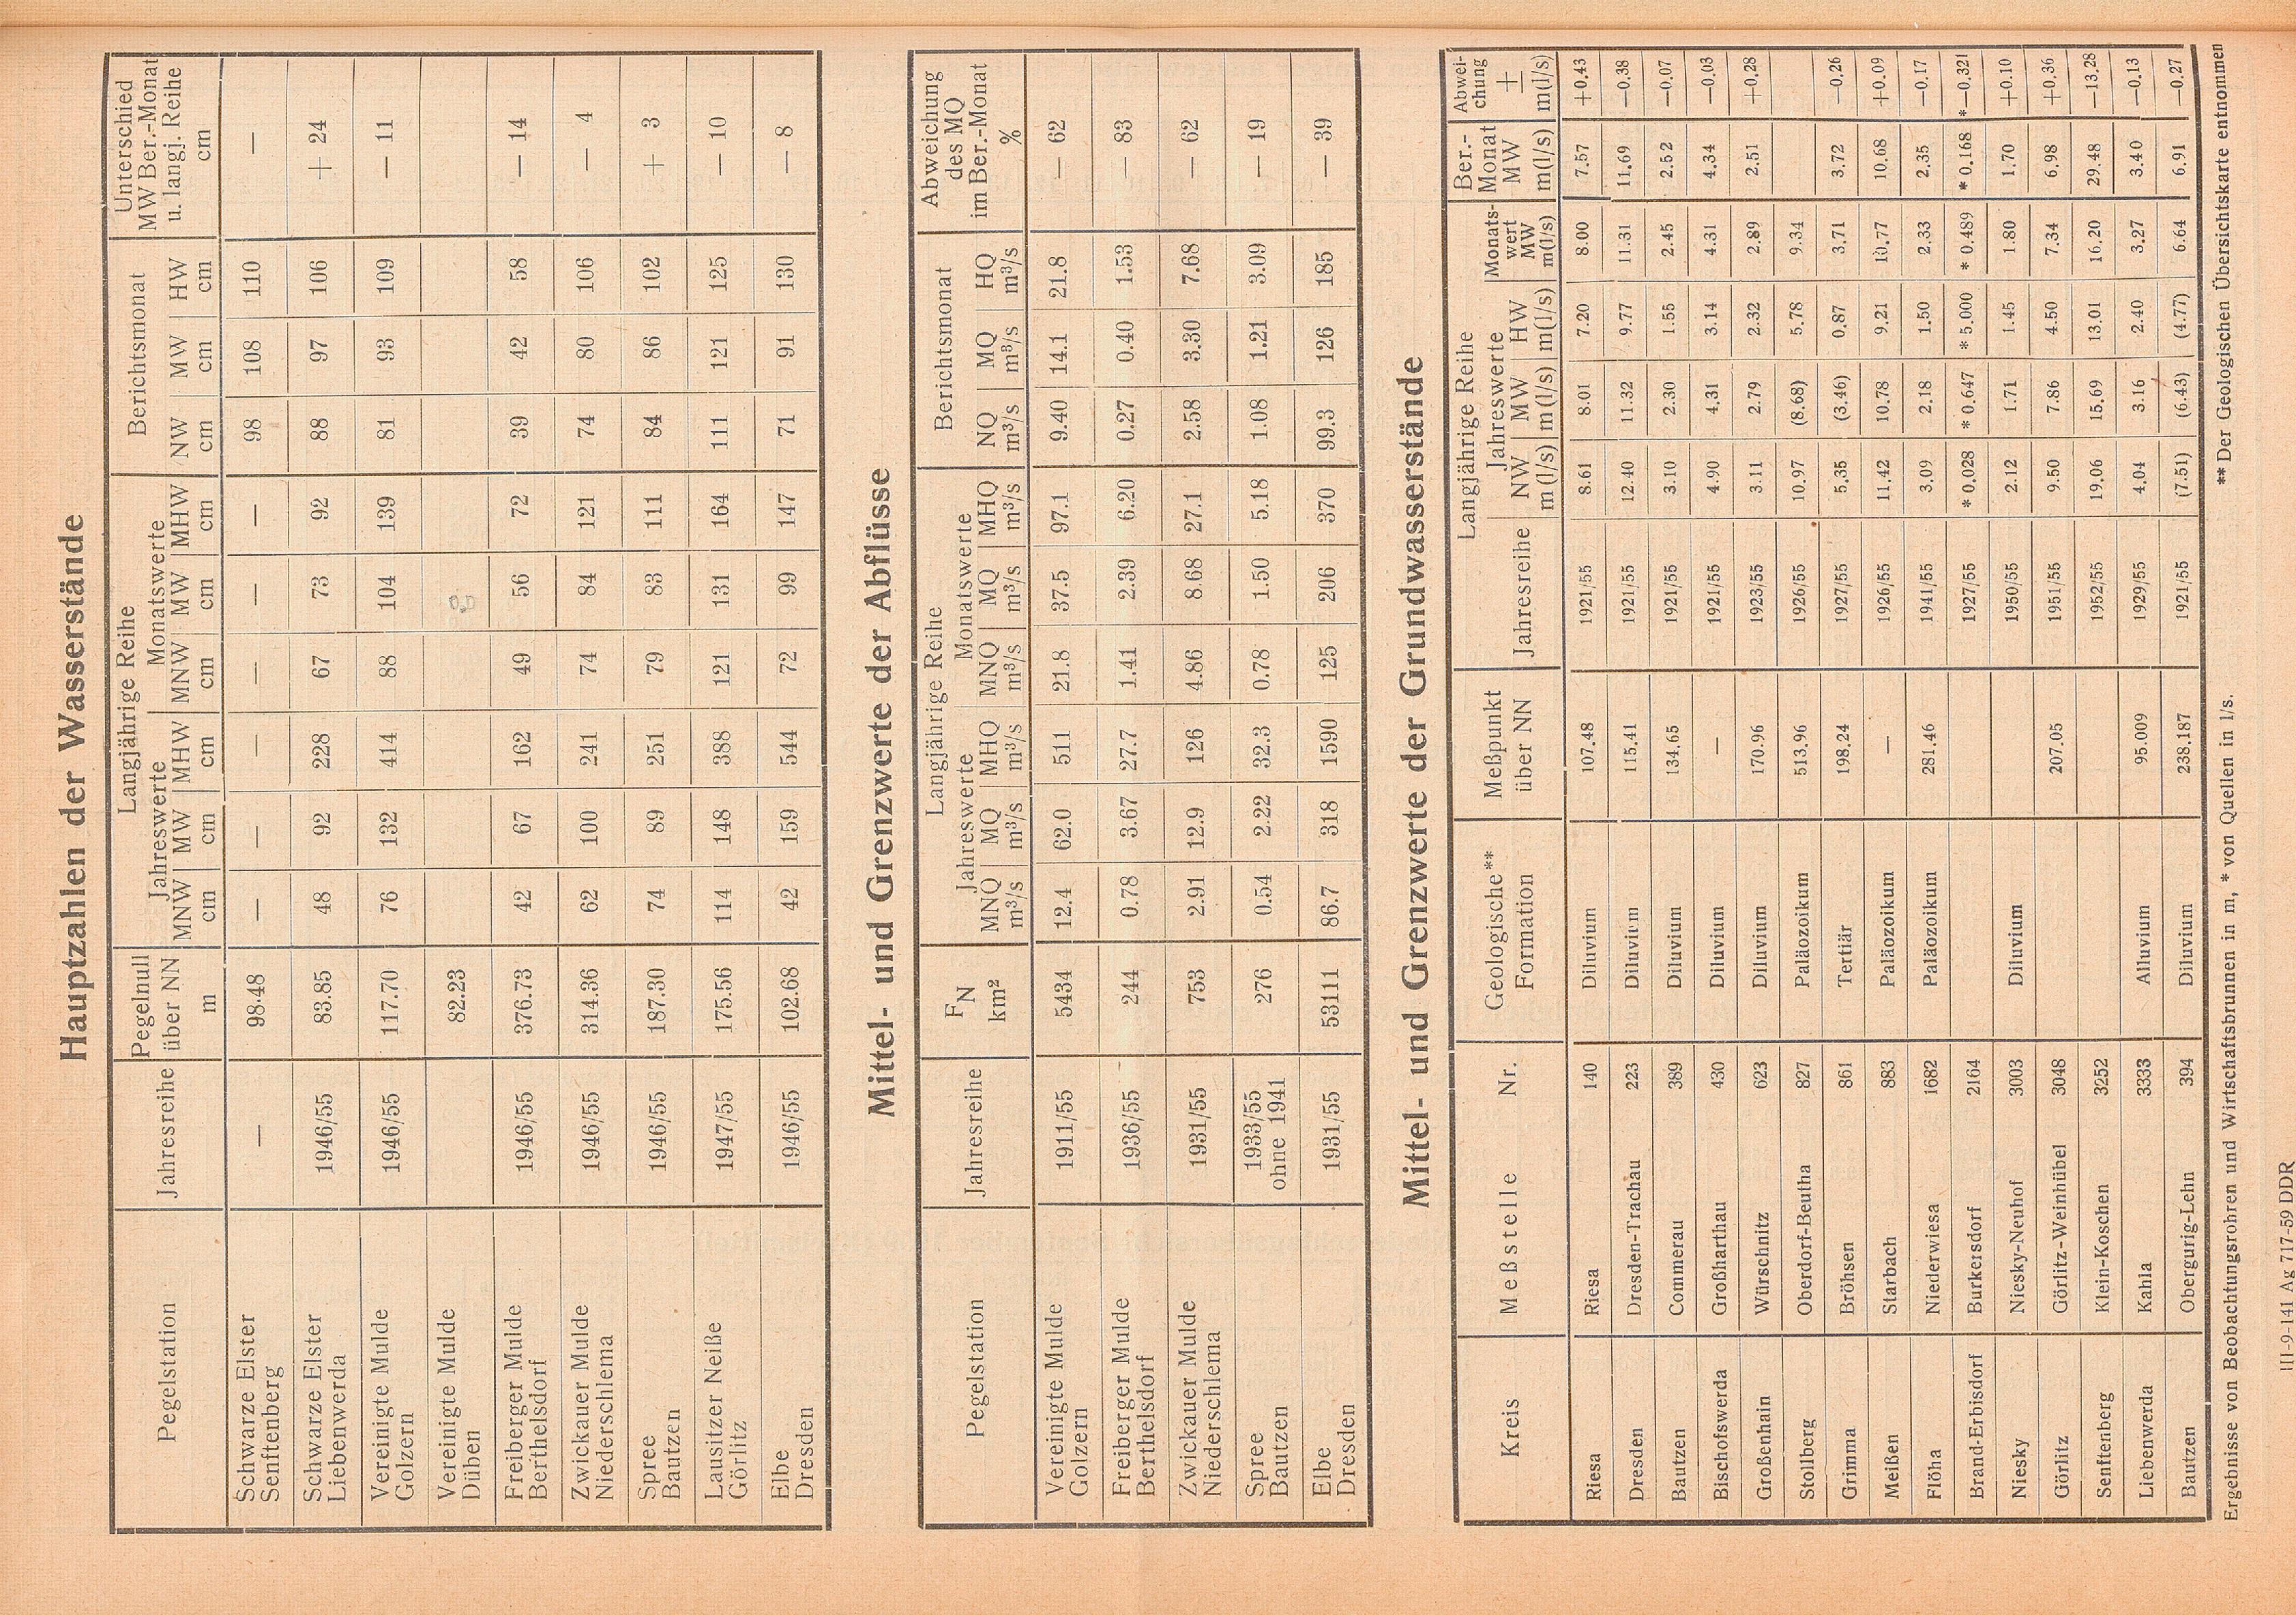 Hauptzahlen der Wasserstände
Pegelstation Jahresreihe Pegelnull über NN m Langjährige Reihe Berichtsmonat Unterschied MW Ber.-Monat u. langj. Reihe cm
Jahreswerte Monatswerte
MNW cm MW cm MHW cm MNW cm MW cm MHW cm NW cm MW cm HW cm
Schwarze Elster Senftenberg — 98.48 — — — — — — 98 108 110 —
Schwarze Elster Liebenwerda 1946/55 83.85 48 92 228 67 73 92 88 97 106 + 24
Vereinigte Mulde Golzern 1946/55 117.70 76 132 414 88 104 139 81 93 109 — 11
Vereinigte Mulde Düben 82.23
Freiberger Mulde Berthelsdorf 1946/55 376.73 42 67 162 49 56 72 39 42 58 — 14
Zwickauer Mulde Niederschlema 1946/55 314.36 62 100 241 74 84 121 74 80 106 — 4
Spree Bautzen 1946/55 187.30 74 89 251 79 83 111 84 86 102 + 3
Lausitzer Neiße Görlitz 1947/55 175.56 114 148 388 121 131 164 111 121 125 — 10
Elbe Dresden 1946/55 102.68 42 159 544 72 99 147 71 91 130 — 8
Mittel- und Grenzwerte der Abflüsse
Pegelstation Jahresreihe FN km² Langjährige Reihe Berichtsmonat Abweichung des MQ im Ber.-Monat %
Jahreswerte Monatswerte
MNQ m³/s MQ m³/s MHQ m³/s MNQ m³/s MQ m³/s MHQ m³/s NQ m³/s MQ m³/s HQ m³/s
Vereinigte Mulde Golzern 1911/55 5434 12.4 62.0 511 21.8 37.5 97.1 9.40 14.1 21.8 — 62
Freiberger Mulde Berthelsdorf 1936/55 244 0.78 3.67 27.7 1.41 2.39 6.20 0.27 0.40 1.53 — 83
Zwickauer Mulde Niederschlema 1931/55 753 2.91 12.9 126 4.86 8.68 27.1 2.58 3.30 7.68 — 62
Spree Bautzen 1933/55 ohne 1941 276 0.54 2.22 32.3 0.78 1.50 5.18 1.08 1.21 3.09 — 19
Elbe Dresden 1931/55 53111 86.7 318 1590 125 206 370 99.3 126 185 — 39
Mittel- und Grenzwerte der Grundwasserstände
Kreis Meßstelle Nr. Geologische** Formation Meßpunkt über NN Langjährige Reihe Ber.-Monat MW m(l/s) Abwei-chung ± m(l/s)
Jahresreihe Jahreswerte NW m(l/s) MW m(l/s) HW m(l/s) Monats-wert MW m(l/s)
Riesa Riesa 140 Diluvium 107.48 1921/55 8.61 8.01 7.20 8.00 7.57 +0.43
Dresden Dresden-Trachau 223 Diluvium 115.41 1921/55 12.40 11.32 9.77 11.31 11.69 —0.38
Bautzen Commerau 389 Diluvium 134.65 1921/55 3.10 2.30 1.55 2.45 2.52 —0.07
Bischofswerda Großharthau 430 Diluvium — 1921/55 4.90 4.31 3.14 4.31 4.34 —0.03
Großenhain Würschnitz 623 Diluvium 170.96 1923/55 3.11 2.79 2.32 2.89 2.51 +0.28
Stollberg Oberdorf-Beutha 827 Paläozoikum 513.96 1926/55 10.97 (8.68) 5.78 9.34
Grimma Bröhsen 861 Tertiär 198.24 1927/55 5.35 (3.46) 0.87 3.71 3.72 —0.26
Meißen Starbach 883 Paläozoikum — 1926/55 11.42 10.78 9.21 10.77 10.68 +0.09
Flöha Niederwiesa 1682 Paläozoikum 281.46 1941/55 3.09 2.18 1.50 2.33 2.35 —0.17
Brand-Erbisdorf Burkersdorf 2164 1927/55 * 0.028 * 0.647 * 5.000 * 0.489 * 0.168 *—0.321
Niesky Niesky-Neuhof 3003 Diluvium 1950/55 2.12 1.71 1.45 1.80 1.70 +0.10
Görlitz Görlitz-Weinhübel 3048 207.05 1951/55 9.50 7.86 4.50 7.34 6.98 +0.36
Senftenberg Klein-Koschen 3252 1952/55 19.06 15.69 13.01 16.20 29.48 —13.28
Liebenwerda Kahla 3333 Alluvium 95.009 1929/55 4.04 3.16 2.40 3.27 3.40 —0.13
Bautzen Obergurig-Lehn 394 Diluvium 238.187 1921/55 (7.51) (6.43) (4.77) 6.64 6.91 —0.27
Ergebnisse von Beobachtungsrohren und Wirtschaftsbrunnen in m, * von Quellen in l/s. ** Der Geologischen Übersichtskarte entnommen
III-9-141 Ag 717-59 DDR